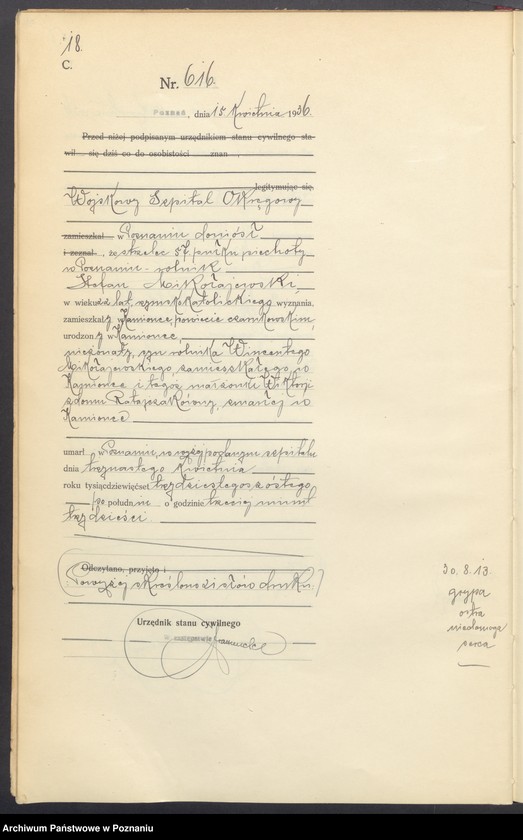 18.
C.
Nr. 616.
Poznań, dnia 15 Kwietnia 1936.
Przed niżej podpisanym urzędnikiem stanu cywilnego sta-
wił się dziś co do osobistości znan
legitymując się
Wojskowy Szpital Okręgowy
zamieszkał w Poznaniu doniósł
i zeznał, że strzelec 57 pułku piechoty
w Poznaniu - rolnik
Stefan Mikołajewski,
w wieku 22 lat, rzymskokatolickiego wyznania,
zamieszkały w Kamionce, powiecie czarnkowskim,
urodzony w Kamionce,
nieżonaty, syn rolnika Wincentego
Mikołajewskiego, zamieszkałego w
Kamionce i tegoż małżonki Wiktorji
z domu Ratajczakówny, zmarłej w
Kamionce
umarł w Poznaniu, w wyżej podanym szpitalu
dnia trzynastego Kwietnia
roku tysiącdziewięćset trzydziestego szóstego
po południu o godzinie trzeciej minut
trzydzieści.
Odczytano, przyjęto i
Powyżej skreślono słów druku.
Urzędnik stanu cywilnego
W zastępstwie
30. 8. 13.
grypa
ostra
niedomoga
serca
Archiwum Państwowe w Poznaniu